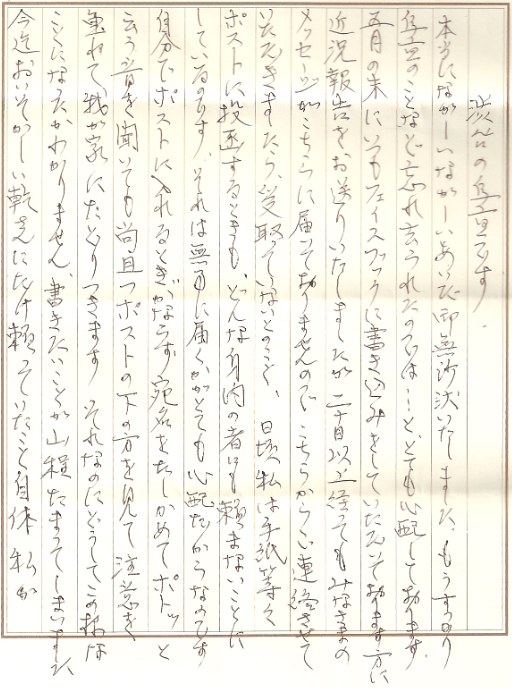 渋谷の
です
本当になが〜いなが〜いあいだ御無沙汰いたしました、もうすっかり
のことなど忘れ去られたのでは…ととても心配しております。
五月の末にいつもフェイスブックに書き込みをしていただいております方に
近況報告をお送りいたしましたが二十日以上経ってもみなさまの
メッセージがこちらに届いておりませんのでこちらからご連絡させて
いただきましたら、受取っていないとのこと、日頃私は手紙等を
ポストに投函するときも、どんな身内の者にも頼まないことに
しているのです。それは無事に届くかがとても心配だからなのです
自分でポストに入れるときかならず宛名をたしかめてポトッと
云う音を聞いても尚且つポストの下の方を見て注意を
重ねて我が家にたどりつきます それなのにどうしてこの様な
ことになったかわかりません、書きたいことが山程たまってしまいました
今迄おいそがしい
にだけ頼っていたこと自体私が